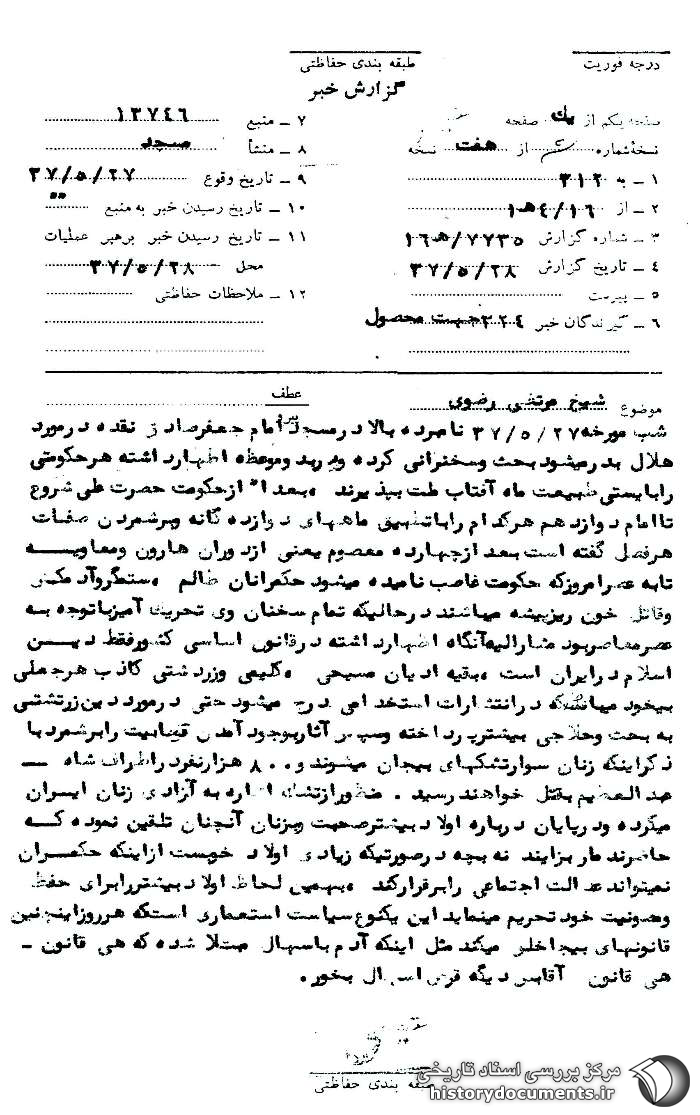 درجه فوریت
طبقه بندی حفاظتی
گزارش خبر
صفحه یکم از یک صفحه
نسخهٔ شماره از هفت نسخه
۱ ـ به ۳۱۲
۲ ـ از ۴/۱۶هـ۱
۳ ـ شماره گزارش ۱۶هـ/۷۷۳۵
۴ ـ تاریخ گزارش ۳۷/۵/۲۸
۵ ـ پیوست
۶ ـ گیرندگان خبر ۳۲۴ جهت محصول
۷ ـ منبع ۱۳۷۴۶
۸ ـ منشأ مسجد
۹ ـ تاریخ وقوع ۳۷/۵/۲۷
۱۰ ـ تاریخ رسیدن خبر به منبع
۱۱ ـ تاریخ رسیدن خبر برهبر عملیات
محل ۳۷/۵/۲۸
۱۲ ـ ملاحظات حفاظتی
موضوع شیخ مرتضی رضوی
عطف
شب مورخه ۳۷/۵/۲۷ نامبرده بالا در مسجد امام جعفر صادق نقده در مورد
هلال بدر میشود بحث و سخنرانی کرده و وموعظه اظهار داشته هر حکومتی
را بایستی طبیعت ماه آفتاب ملت بپذیرند ، بعدا" از حکومت حضرت علی شروع
تا امام دوازدهم هر کدام را با تطبیق ماههای دوازده گانه و برشمردن صفات
هر فصلی گفته است بعد از چهارده معصوم یعنی از دوران هارون و معاویه
تا به عصر امروز که حکومت غاصب نامیده میشود حکمرانان ظالم ، ستمگر و آدمکش
و قاتل خون ریز بیشه میباشند در حالیکه تمام سخنان وی تحریک آمیز با توجه به
عصر معاصر بود مشارالیه آنگاه اظهار داشته در قانون اساسی کشور فقط دین
اسلام در ایران است ، بقیه ادیان مسیحی ، کلیمی و زردشتی کاذب هر جعلی
بیخود میباشد که در انتشارات استخدامی درج میشود حتی در مورد دین زرتشتی
به بحث و حلاجی بیشتر پرداخته و سپس آثار بوجود آمدن را برشمرد با
ذکر اینکه زنان سوار تشکهای بیجان میشوند و ۸۰۰ هزار نفر در اطراف شاه ـ
عبدالعظیم بقتل خواهند رسید . منظور از تشک اشاره به آزادی زنان ایران
میکرده و در پایان درباره اولاد بیشتر صحبت و بزنان آنچنان تلقین نموده که
حاضرند مار بزایند نه بچه در صورتیکه زیادی اولاد خوبست از اینکه حکمران
نمیتواند عدالت اجتماعی را برقرار کند ، بهمین لحاظ اولاد بیشتر را برای حفظ
ومصونیت خود تحریم مینماید این یکنوع سیاست استعماری استکه هر روز اینچنین
قانونهای بیجا خلق میکند مثل اینکه آدم باسهال مبتلا شده که هی قانون ـ
هی قانون آقا بس دیگه قرص اسهال بخور .
طبقه بندی حفاظتی
مرکز بررسی اسناد تاریخی
historydocuments.ir